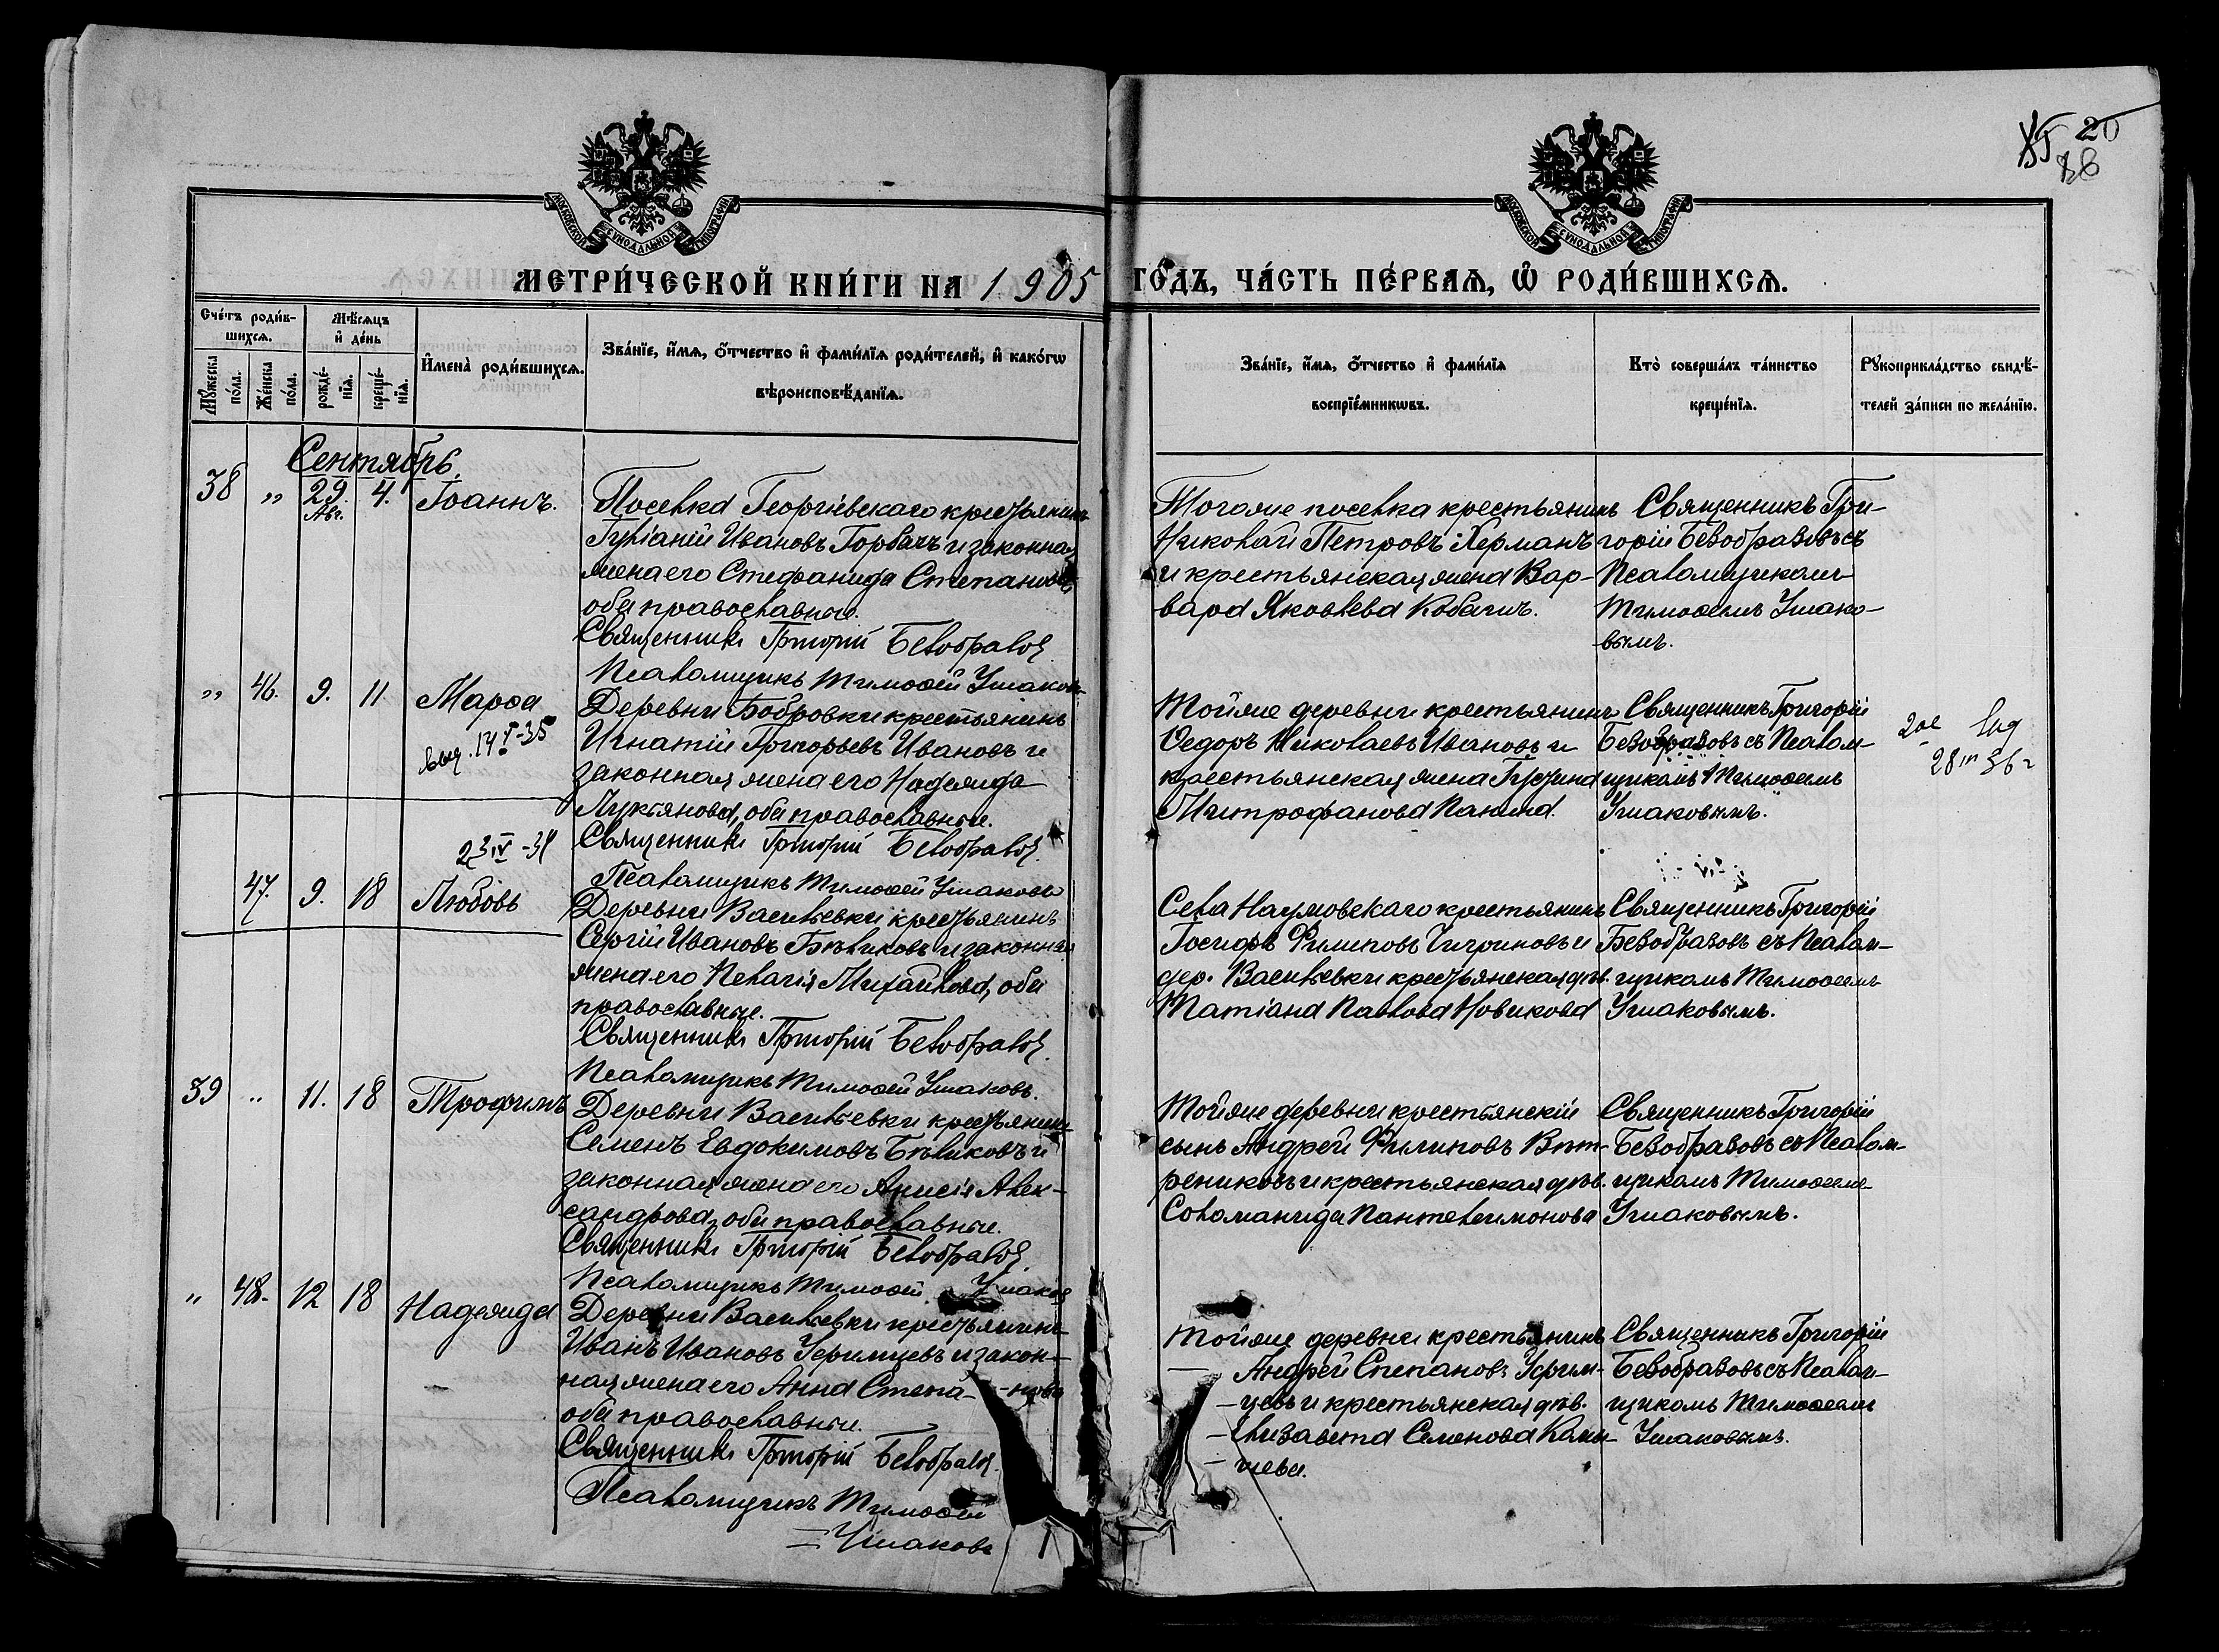 20
18
МОСКОВСКОЙ СѴНОДАЛЬНОЙ ТИПОГРАФІИ
МОСКОВСКОЙ СѴНОДАЛЬНОЙ ТИПОГРАФІИ
МЕТРИ́ЧЕСКОЙ КНИ́ГИ НА 1905 ГО́ДЪ, ЧА́СТЬ ПЕ́РВАѦ, Ѿ РОДИ́ВШИХСѦ.
Сче́тъ роди́в-
шихсѧ.
Мꙋ́жеска
по́ла.
Же́нска
по́ла.
Мѣ́сѧцъ
и́ де́нь
рожде́-
нїѧ.
креще́-
нїѧ.
И҆мена̀ роди́вшихсѧ.
Зва́нїе, и҆́мѧ, ѻ҆́тчество и҆ фами́лїѧ роди́телей, и҆ како́гѡ
вѣроисповѣ́данїѧ.
Зва́нїе, и҆́мѧ, ѻ҆́тчество и҆ фами́лїѧ
воспрїе́мникѡвъ.
Кто̀ соверша́лъ та́инство
креще́нїѧ.
Рꙋкоприкла́дство свидѣ́-
телей за́писи по жела́нїю.
Сентябрь
38 „ 29. Авг. 4. Іоаннъ.
Поселка Георгіевскаго крестьянинъ
Ивановъ Горбачъ и законная
жена его Стефанида Степанова
оба православные.
Священникъ Григорій Безобразовъ
Псаломщикъ Тимоѳей Ушаковъ
Тогоже поселка крестьянинъ
Николай Петровъ Херманъ
и крестьянская жена Вар-
вара Яковлева Кобачъ.
Священникъ Гри-
горій Безобразовъ съ
Псаломщикомъ
Тимоѳеемъ Ушако-
вымъ.
„ 46. 9. 11. Марѳа
выд. 14 I-35
Деревни Бобровки крестьянинъ
Игнатій Григорьевъ Ивановъ и
законная жена его Надежда
Лукьянова, оба православные.
Священникъ Григорій Безобразовъ
Псаломщикъ Тимоѳей Ушаковъ
Тойже деревни крестьянинъ
Ѳедоръ Николаевъ Ивановъ и
крестьянская жена
Митрофанова Панина.
Священникъ Григорій
Безобразовъ съ Псалом-
щикомъ Тимоѳеемъ
Ушаковымъ.
2ое
28 III 36 г
23 IV -34
47. 9. 18 Любовь
Деревни Васильевки крестьянинъ
Сергій Ивановъ Бѣликовъ и законная
жена его Пелагія Михайлова, оба
православные.
Священникъ Григорій Безобразовъ
Псаломщикъ Тимоѳей Ушаковъ.
Села Наумовскаго крестьянинъ
Іосифъ Филиповъ Чигриновъ и
дер. Васильевки крестьянская дѣв.
Татіана Павлова Новикова
Священникъ Григорій
Безобразовъ съ Псалом-
щикомъ Тимоѳеемъ
Ушаковымъ.
39 „ 11. 18 Трофимъ
Деревни Васильевки крестьянинъ
Семенъ Евдокимовъ Бѣликовъ и
законная жена его Анисія Алек-
сандрова, оба православные.
Священникъ Григорій Безобразовъ
Псаломщикъ Тимоѳей Ушаковъ
Тойже деревни крестьянскій
сынъ Андрей Филиповъ Вѣт-
рениковъ и крестьянская дѣв.
Соломанида Пантелеимонова
Священникъ Григорій
Безобразовъ съ Псалом-
щикомъ Тимоѳеемъ
Ушаковымъ.
„ 48. 12 18 Надежда
Деревни Васильевки крестьянинъ
Иванъ Ивановъ Уеримцевъ и закон-
ная жена его Анна Степа-нова
оба православные.
Священникъ Григорій Безобразовъ.
Псаломщикъ Тимоѳей
Ушаковъ
Тойже деревни крестьянинъ
Андрей Степановъ
цевъ и крестьянская дѣв.
Елизавета Семенова
Священникъ Григорій
Безобразовъ съ Псалом-
щикомъ Тимоѳеемъ
Ушаковымъ.